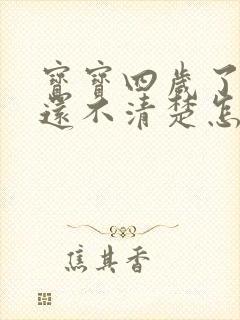 寶寶四歲了
還不清楚怎
焦其香